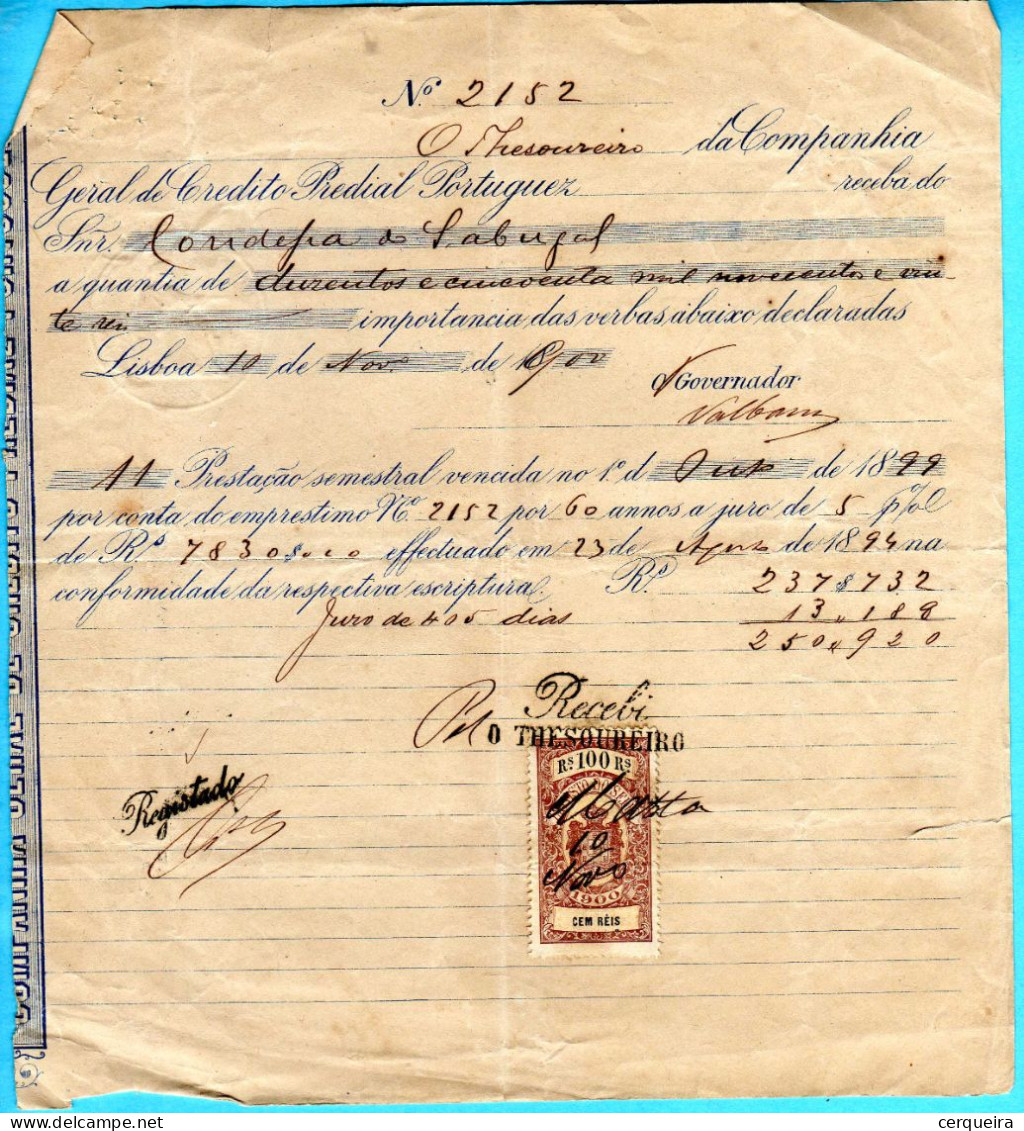 Nº 2152
O Thesoureiro da Companhia
Geral de Credito Predial Portuguez receba do
Snr. Condessa do Sabugal
a quantia de duzentos e cincoenta mil novecentos e vin-
te reis importancia das verbas abaixo declaradas
Lisboa 10 de Novo de 1900
O Governador
Valbom
11 Prestação semestral vencida no 1º d de 1899
por conta do emprestimo Nº 2152 por 60 annos a juro de 5 p%
de Rs. 7830$000 effectuado em 23 de Agosto de 1894 na
conformidade da respectiva escriptura. Rs. 237$732
Juro de 405 dias 13"188
250"920
Recebi
Pel O THESOUREIRO
Rs 100 Rs
Registado
Matta
10
Novo
1900
CEM RÉIS
COMPANHIA GERAL DE CREDITO PREDIAL PORTUGUEZ
cerqueira